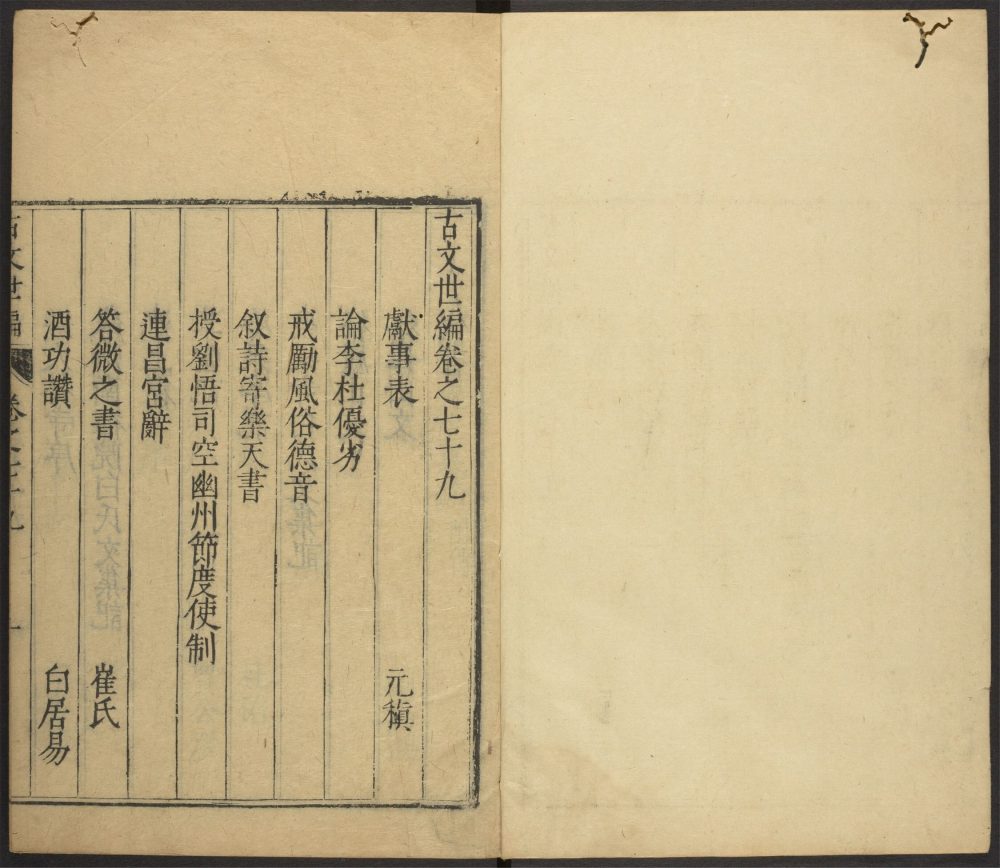 古文世編卷之七十九
獻事表 元稹
論李杜優劣
戒勵風俗德音
叙詩寄樂天書
授劉悟司空幽州節度使制
連昌宮辭
答微之書 崔氏
酒功讚 白居易
古文世編 卷之七十九 一